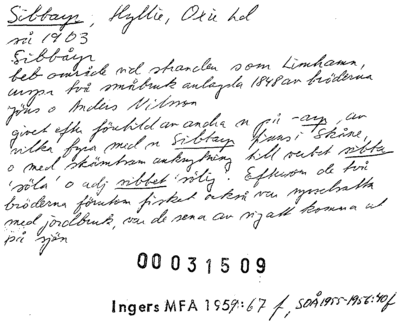 Sibbarp, Hyllie, Oxie hd
så 1903
Sibbåp
beb.område vid stranden som Limhamn,
urspr två småbruk anlagda 1848 av bröderna
Jöns o Anders Nilsson
givet efter förebild av andra n på -arp, av
vilka fyra med n Sibbarp finns i Skåne,
o med skämtsam anknytning till verbet sibba
'söla' o adj sibbet 'sölig'. Eftersom de två
bröderna förutom fisket också var sysselsatta
med jordbruk, var de sena av sig att komma ut
på sjön
00031509
Ingers MFA 1959:67 f, SOÅ 1955-1956:40 f